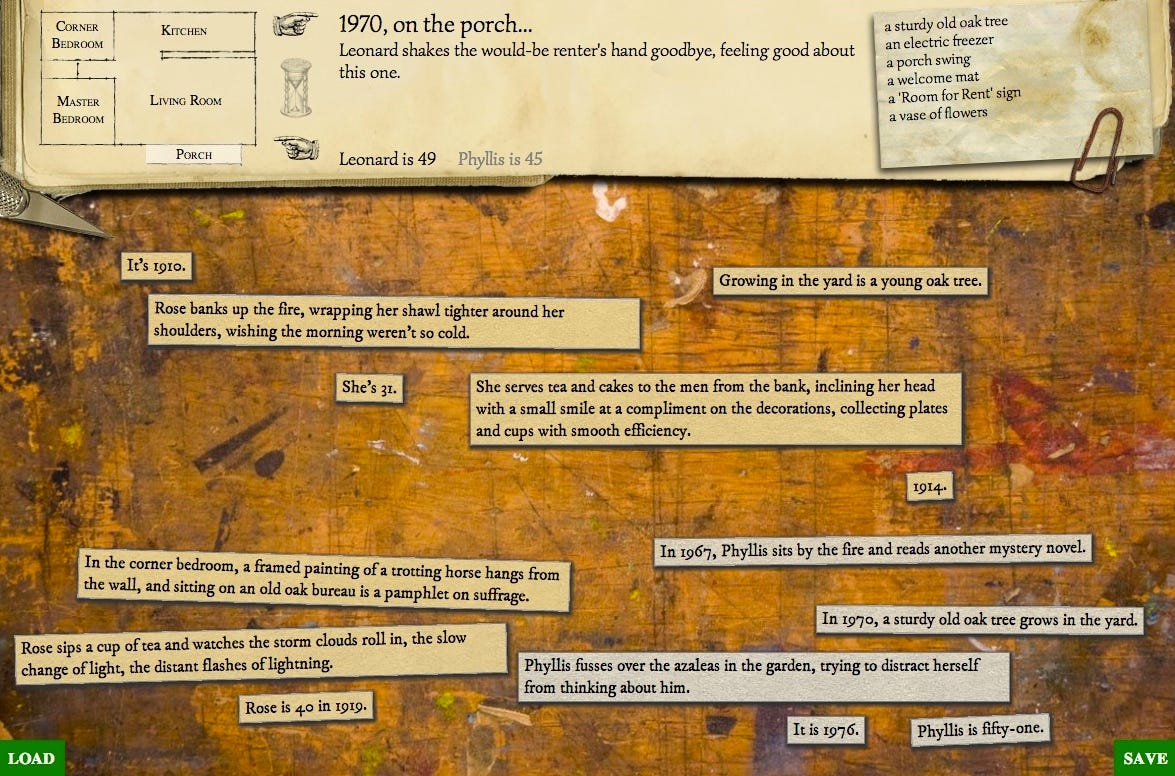 Corner
Bedroom
Kitchen
Master
Bedroom
Living Room
Porch
1970, on the porch...
Leonard shakes the would-be renter's hand goodbye, feeling good about
this one.
Leonard is 49 Phyllis is 45
a sturdy old oak tree
an electric freezer
a porch swing
a welcome mat
a 'Room for Rent' sign
a vase of flowers
It's 1910.
Growing in the yard is a young oak tree.
Rose banks up the fire, wrapping her shawl tighter around her
shoulders, wishing the morning weren't so cold.
She's 31.
She serves tea and cakes to the men from the bank, inclining her head
with a small smile at a compliment on the decorations, collecting plates
and cups with smooth efficiency.
1914.
In 1967, Phyllis sits by the fire and reads another mystery novel.
In the corner bedroom, a framed painting of a trotting horse hangs from
the wall, and sitting on an old oak bureau is a pamphlet on suffrage.
In 1970, a sturdy old oak tree grows in the yard.
Rose sips a cup of tea and watches the storm clouds roll in, the slow
change of light, the distant flashes of lightning.
Phyllis fusses over the azaleas in the garden, trying to distract herself
from thinking about him.
Rose is 40 in 1919.
It is 1976.
Phyllis is fifty-one.
LOAD
SAVE